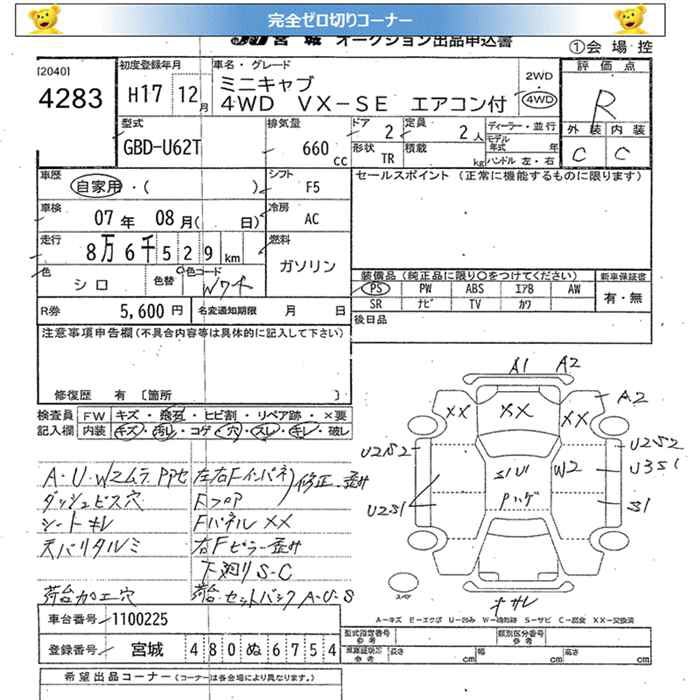 完全ゼロ切りコーナー
JU 宮城 オークション出品申込書
①会場控
[2040]
4283
初度登録年月
H17 12月
車名・グレード
ミニキャブ
4WD VX-SE エアコン付
2WD
4WD
評価点
R
外装 内装
C C
型式
GBD-U62T
排気量
660 cc
ドア 2
定員 2人
形状 TR
積載 kg
ディーラー・並行
モデル年式 年
ハンドル 左・右
車歴
自家用・( )
シフト
F5
セールスポイント (正常に機能するものに限ります)
車検
07年 08月( 日)
冷房
AC
走行
8万6千529km
燃料
ガソリン
色
シロ
色替
色コード
Wワイト
装備品 (純正品に限り○をつけてください)
PS PW ABS エアB AW
SR ナビ TV カワ
新車保証書
有・無
R券
5,600円
名変通知期限 月 日
後日品
注意事項申告欄 (不具合内容等は具体的に記入して下さい)
修復歴 有 [箇所 ]
検査員記入欄
FW キズ・飛石・ヒビ割・リペア跡・×要
内装 キズ・汚れ・コゲ・穴・スレ・キレ・破レ
A1 A2
A2
XX XX XX
U2S2 U2S2
U3S1
W2
U2S1 S1
ダッシュビス穴
シートキレ
天バリタルミ
荷台加工穴
Fフロア
Fパネル XX
右Fピラー歪み
下廻りS-C
スペア
A-キズ E-エクボ U-凹み W-補修跡 S-サビ C-腐食 XX-交換済
車台番号 1100225
登録番号 宮城 480 ぬ 6754
型式指定番号 参考
類別区分番号 参考
長さ cm 幅 cm 高さ cm
希望出品コーナー (コーナーは各会場により異なります。)